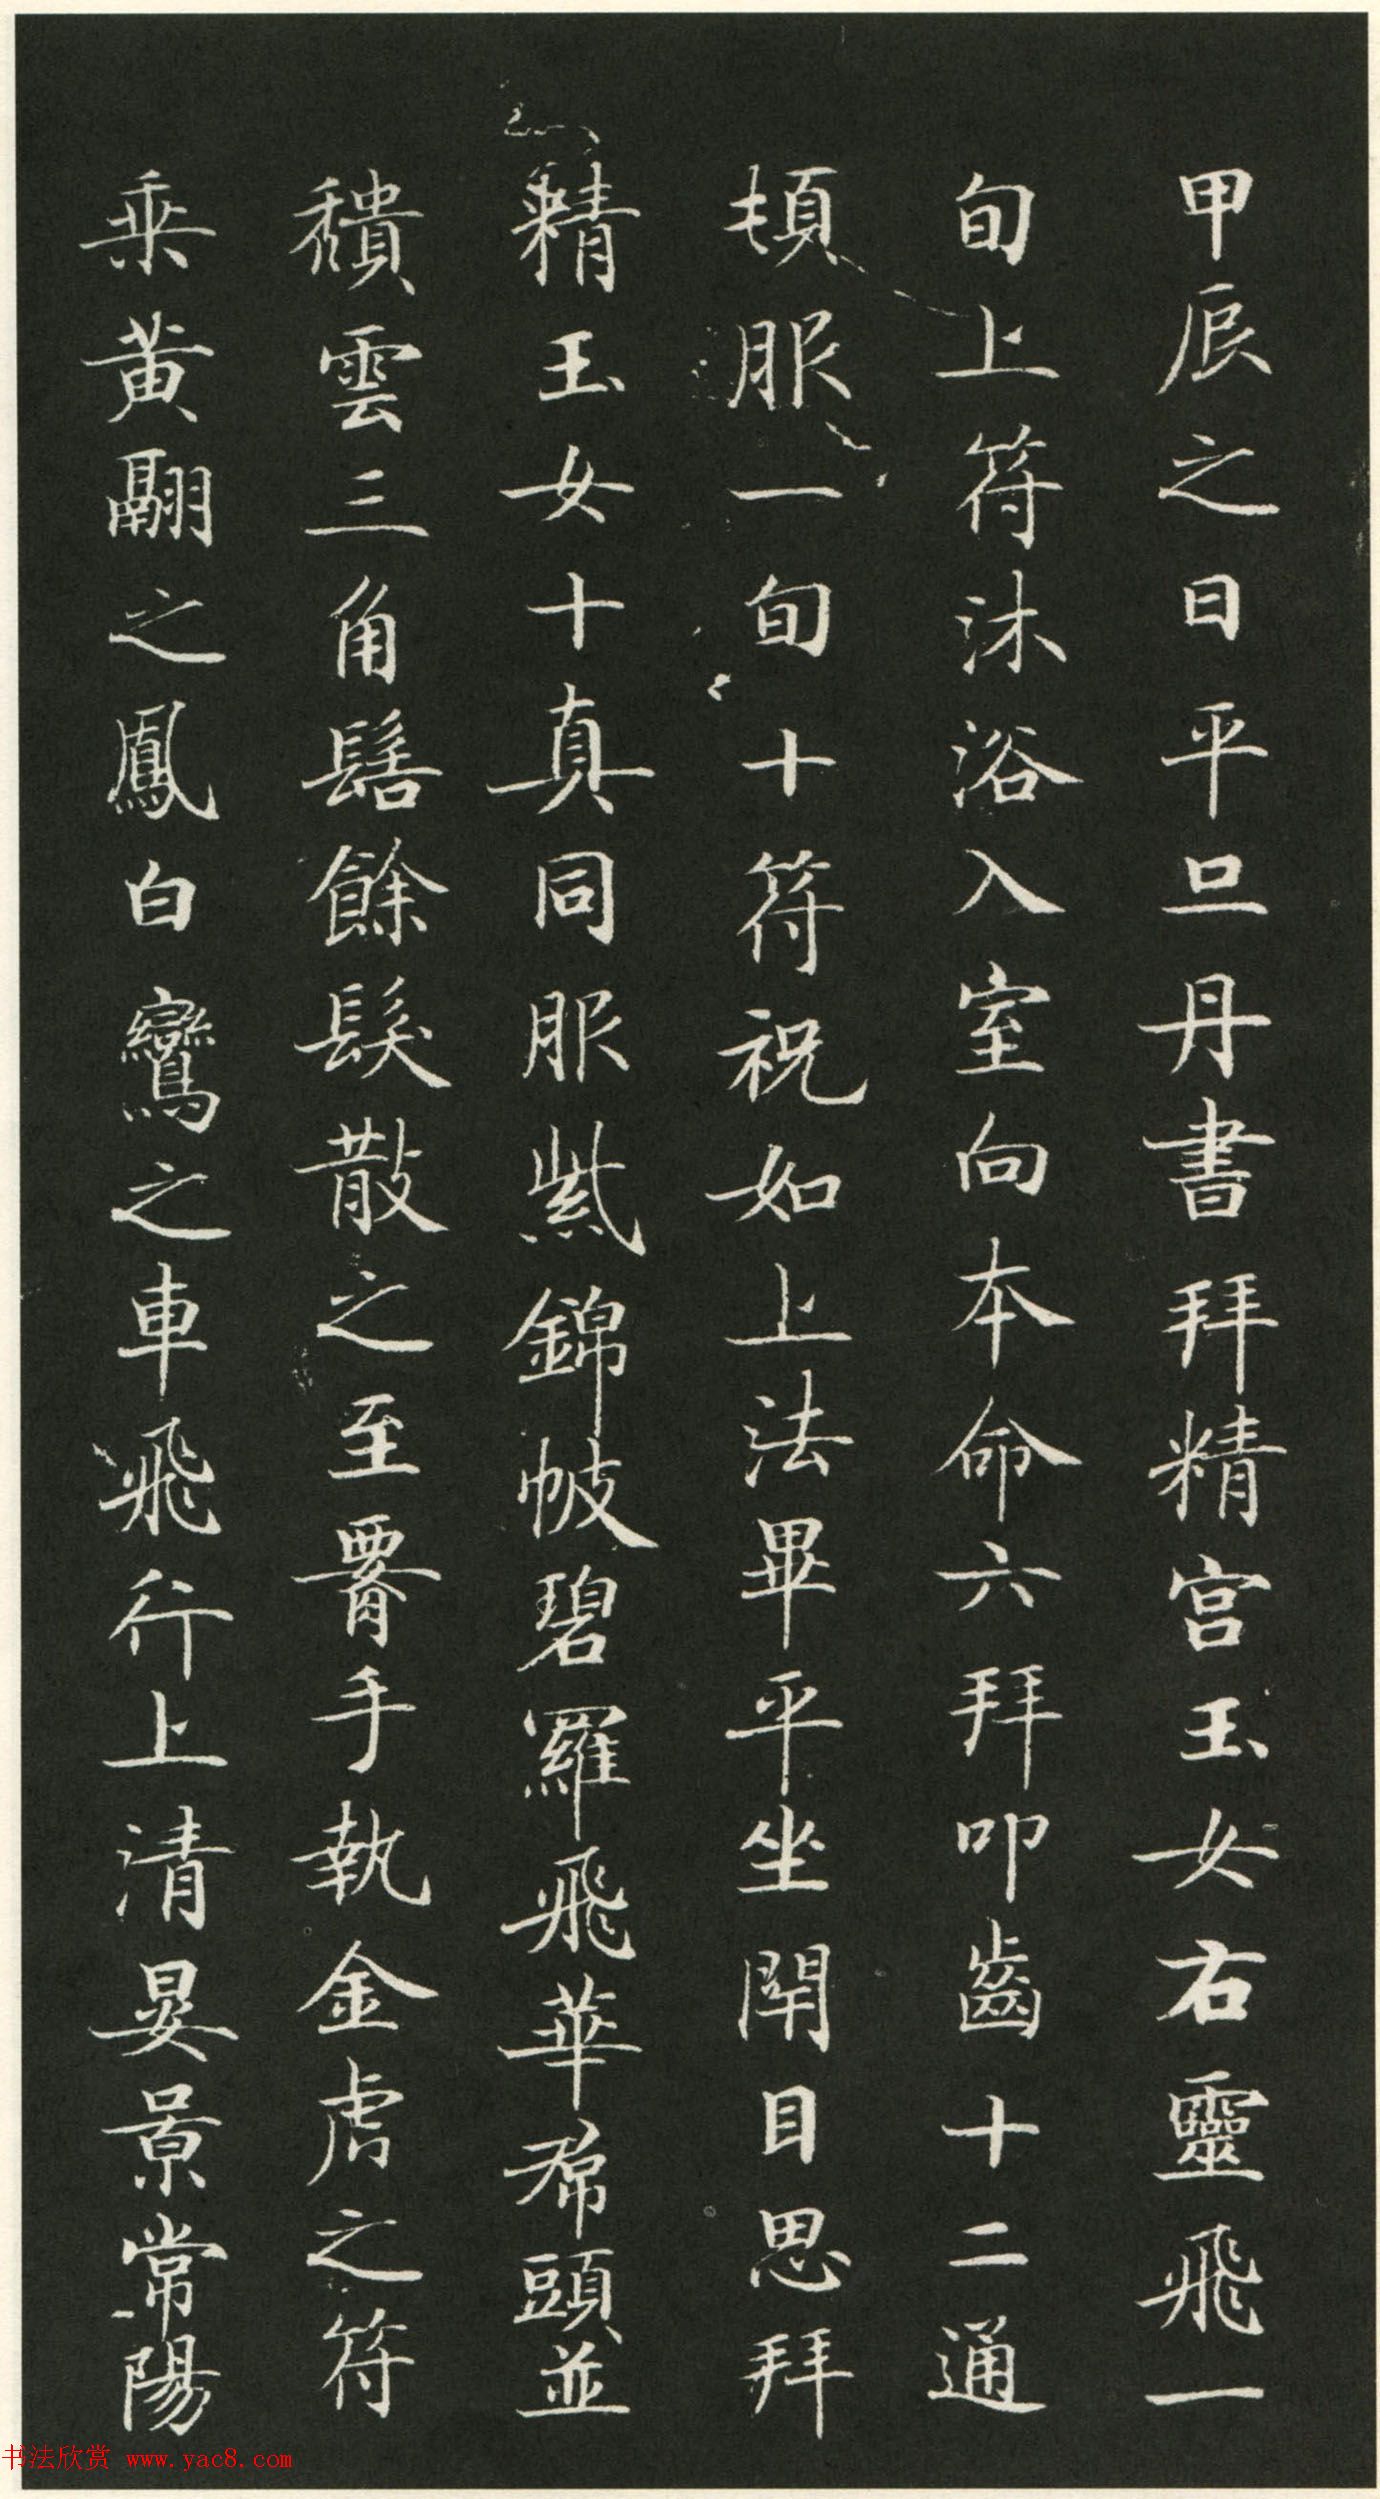 甲辰之日平旦丹書拜精宮玉女右靈飛一
旬上符沐浴入室向本命六拜叩齒十二通
頓服一旬十符祝如上法畢平坐閉目思拜
精玉女十真同服紫錦帔碧羅飛華帬頭並
穨雲三角髻餘髮散之至署手執金虎之符
乘黃翮之鳳白鸞之車飛行上清晏景常陽
书法欣赏 www.yac8.com